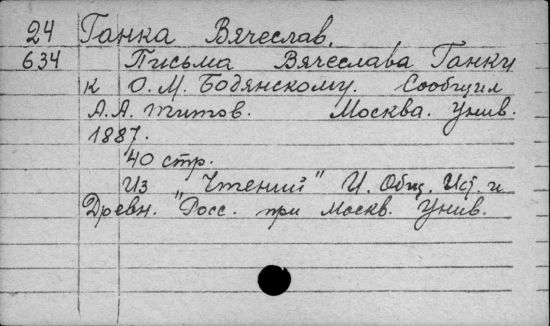 24 Ганка Вячеслав.
634 Письма Вячеслава Ганки
к О.М. Бодянскому. Сообщил
А.А. Титов. Москва. Унив.
1887.
40 стр.
Из "Чтений" И. Общ. Ист. и
Древн. Росс. при Москв. Унив.